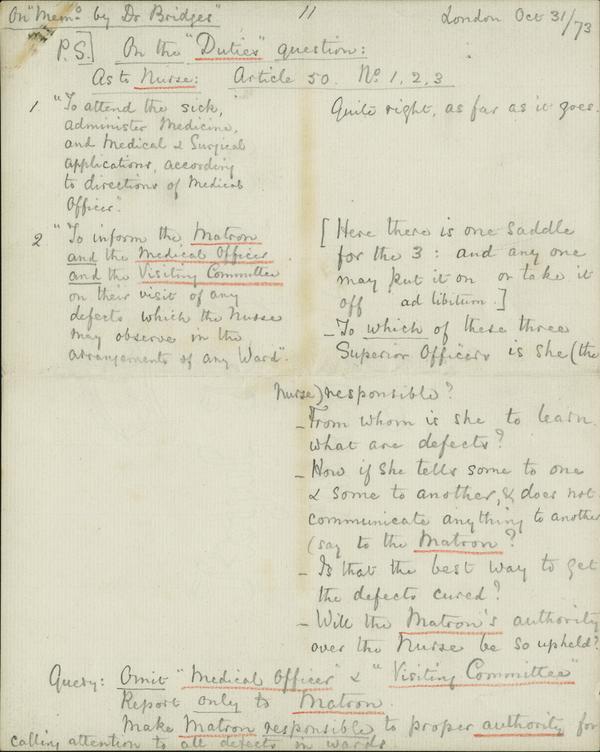 On "Memo. by Dr Bridges"
11
London Oct 31/73
P.S.] On the "Duties" question:
As to Nurse: Article 50. No 1, 2, 3
1 "To attend the sick,
administer Medicine,
and Medical & Surgical
applications, according
to directions of Medical
Officer".
Quite right, as far as it goes.
2 "To inform the Matron
and the Medical Officer
and the Visiting Committee
on their visit of any
defects which the Nurse
may observe in the
arrangements of any Ward".
[Here there is one saddle
for the 3: and any one
may put it on or take it
off ad libitum.]
- To which of these three
Superior Officers is she (the
Nurse) responsible?
- From whom is she to learn
what are defects?
- How if she tells some to one
& some to another, & does not
communicate anything to another
(say to the Matron?
- Is that the best way to get
the defects cured?
- Will the Matron's authority
over the Nurse be so upheld?
Query: Omit "Medical Officer" & "Visiting Committee"
Report only to Matron.
Make Matron responsible to proper authority for
calling attention to all defects in wards.